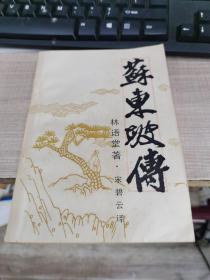 蘇東坡傳
林语堂著·宋碧云译